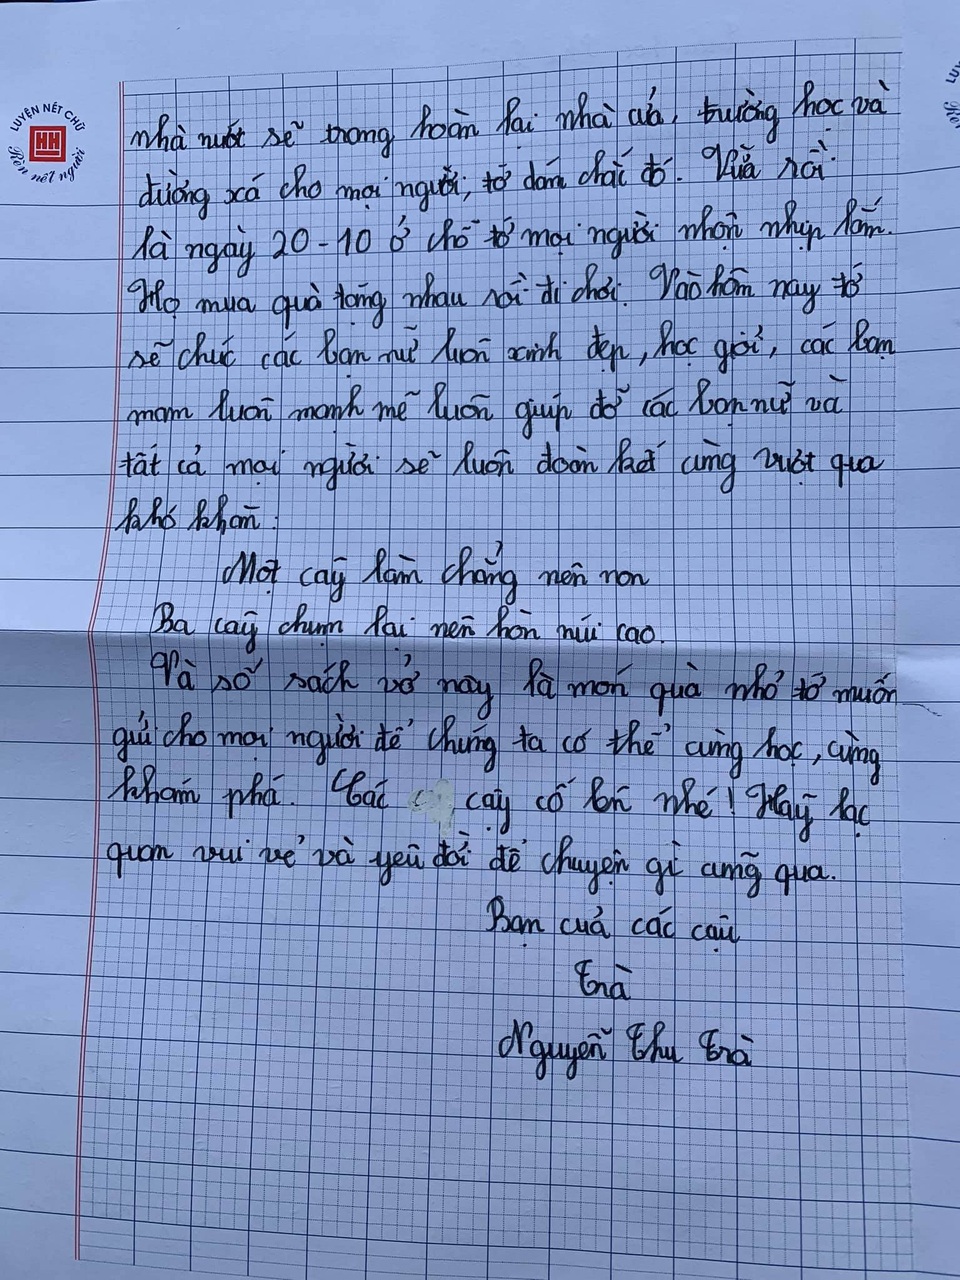 LUYỆN NÉT CHỮ
HH
Rèn nết người
nhà nước sẽ trong hoàn lại nhà cửa, trường học và
đường xá cho mọi người, tớ dám chắc đó. Vừa rồi
là ngày 20-10 ở chỗ tớ mọi người nhộn nhịp lắm.
Họ mua quà tặng nhau rồi đi chơi. Vào hôm nay tớ
sẽ chúc các bạn nữ luôn xinh đẹp, học giỏi, các bạn
nam luôn mạnh mẽ luôn giúp đỡ các bạn nữ và
tất cả mọi người sẽ luôn đoàn kết cùng vượt qua
khó khăn.
Một cây làm chẳng nên non
Ba cây chụm lại nên hòn núi cao.
Và số sách vở này là món quà nhỏ tớ muốn
gửi cho mọi người để chúng ta có thể cùng học, cùng
khám phá. Các cậy cố lên nhé! Hãy lạc
quan vui vẻ và yêu đời để chuyện gì cũng qua.
Bạn của các cậu
Trà
Nguyễn Thu Trà